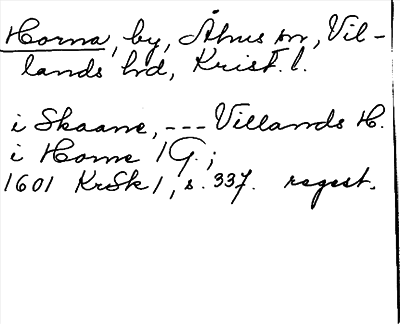 Horna, by, Åhus sn, Vil-
lands hd, Krist. l.
i Skaane, --- Villands H.
i Horne 1 G.;
1601 KrSk 1, s. 337. regest.